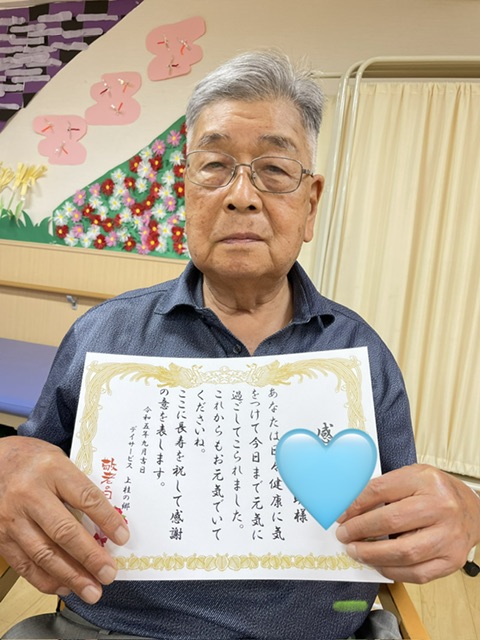 感
様
あなたは日々健康に気
をつけて今日まで元気に
過ごしてこられました。
これからもお元気でいて
くださいね。
ここに長寿を祝して感謝
の意を表します。
令和五年九月吉日
デイサービス 上桂の郷
敬老の日